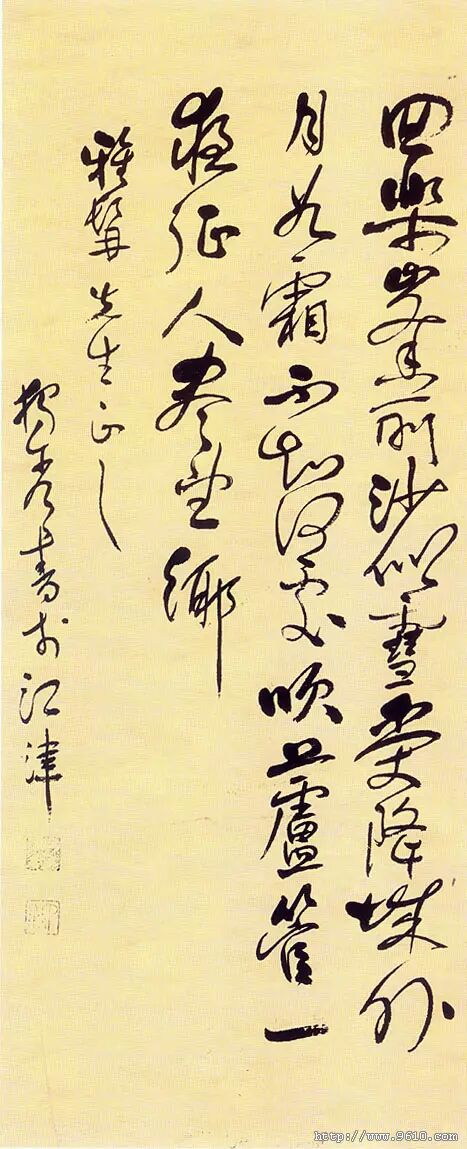 回樂峯前沙似雪受降城外
月如霜不知何處吹蘆管一
夜征人盡望鄉
雅髯先生正之
獨秀書於江津
http://www.9610.com